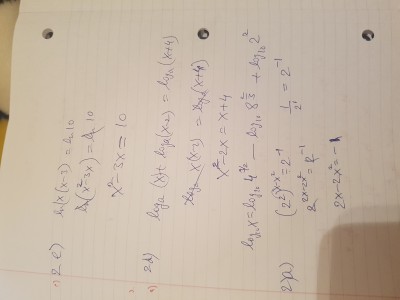 2 e) ln(x(x-3) = ln 10
ln(x²-3x) = ln 10
x²-3x = 10
2 h) logₐ(x) + logₐ(x-2) = logₐ(x+4)
logₐ x(x-2) = logₐ(x+4)
x²-2x = x+4
log₁₀ x = log₁₀ 4^(½) - log₁₀ 8^(⅔) + log₁₀ 2²
2)a) (2²)^(x-x²) = 2⁻¹
1/2¹ = 2⁻¹
2^(2x-2x²) = 2⁻¹
2x-2x² = -1